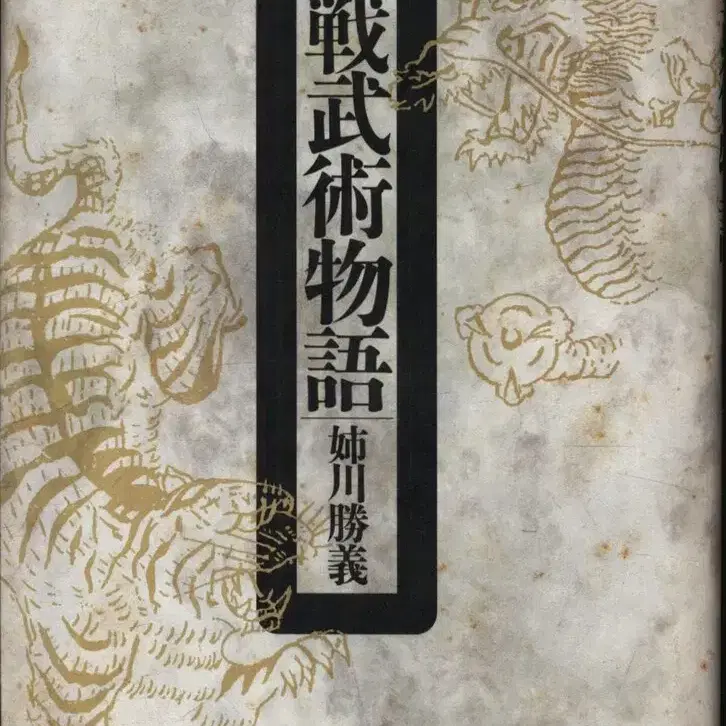 戦武術物語
姉川勝義